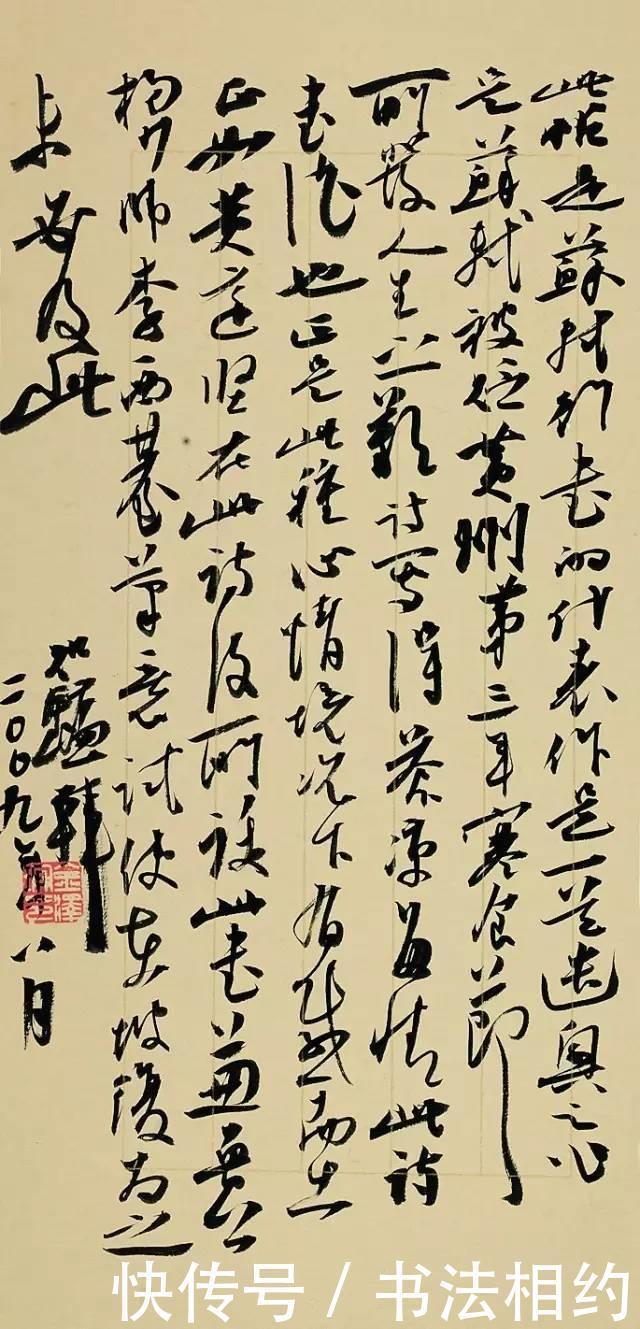 此帖是蘇軾行書的代表作是一首遣興之作
是蘇軾被貶黃州第三年寒食節
所發人生之歎詩寫得蒼涼多情此詩
書法也正是此種心情境況下有感而出
正如黃庭堅在此詩後所跋此書兼顏魯公
楊少師李西臺筆意試使東坡復為之
未必及此
二〇〇九年八月
快传号 / 书法相约